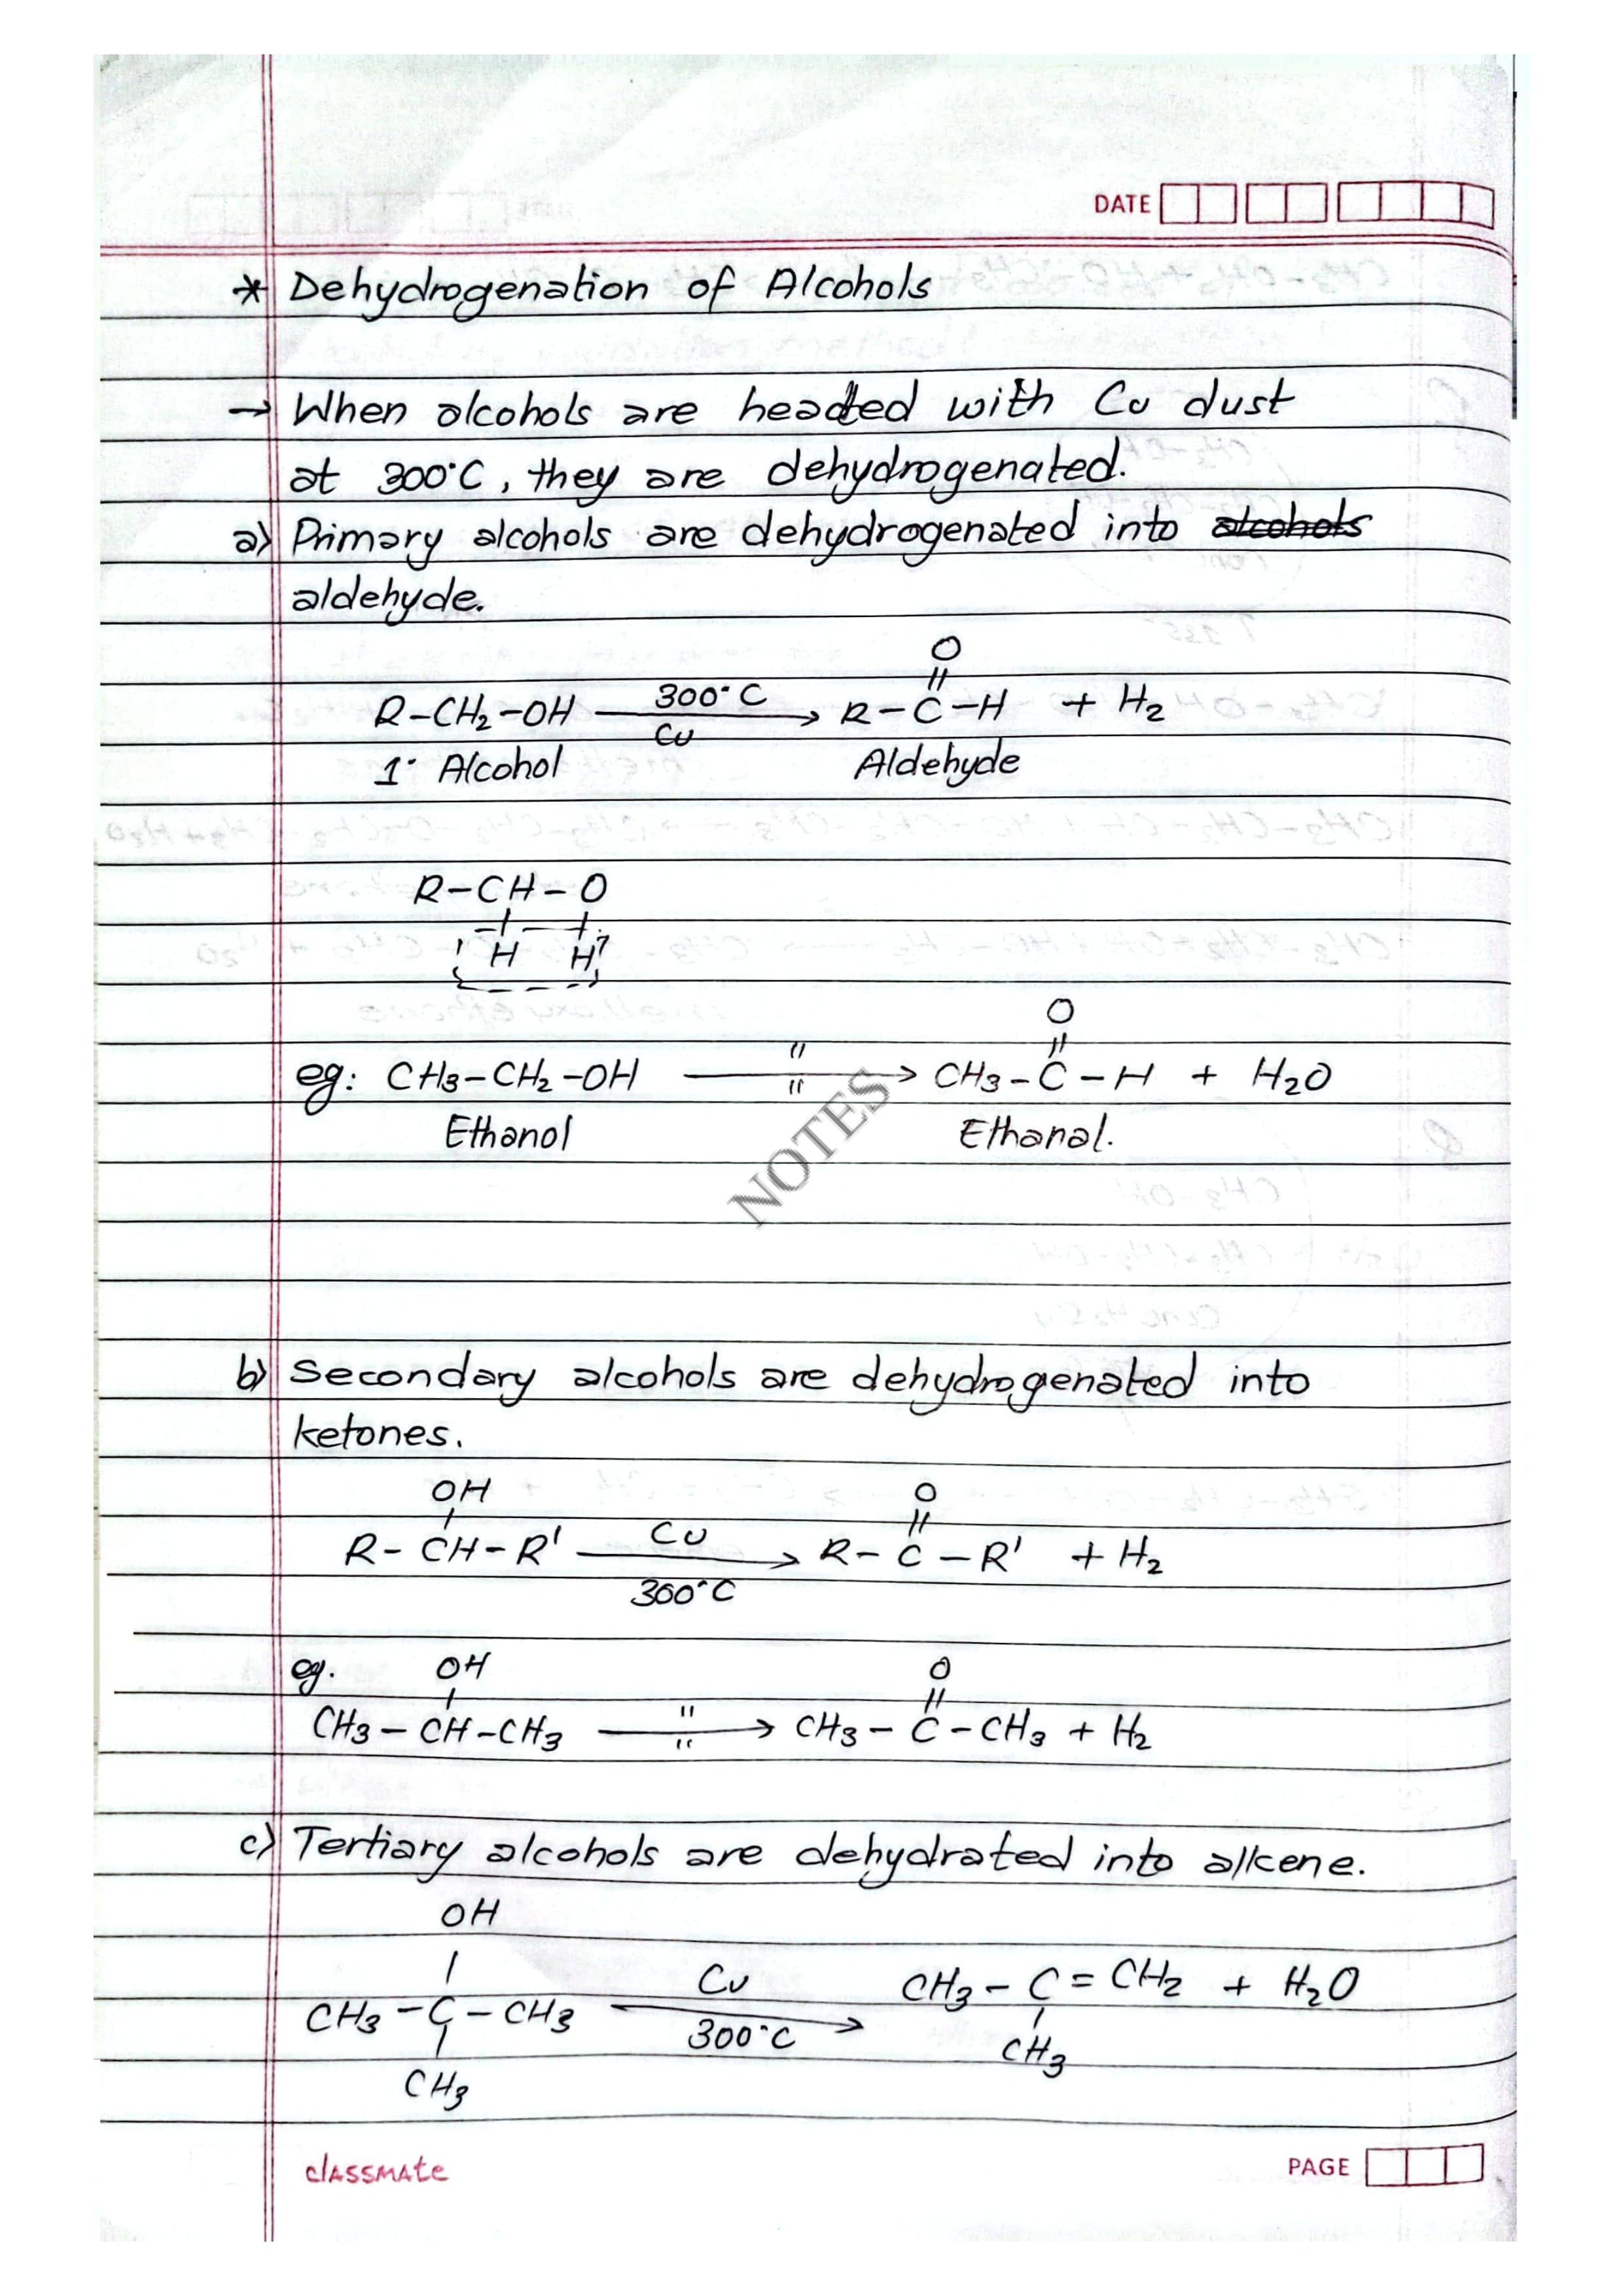 DATE
* Dehydrogenation of Alcohols
→ When alcohols are headted with Cu dust
at 300°C, they are dehydrogenated.
a) Primary alcohols are dehydrogenated into alcohols
aldehyde.
O
||
R-CH₂-OH 300°C → R-C-H + H₂
Cu
1° Alcohol Aldehyde
R-CH-O
H H
O
||
eg: CH₃-CH₂-OH " → CH₃-C-H + H₂O
"
Ethanol Ethanal.
NOTES
b) Secondary alcohols are dehydrogenated into
ketones.
OH O
R-CH-R' Cu → R-C-R' + H₂
300°C
eg. OH O
CH₃-CH-CH₃ " → CH₃-C-CH₃ + H₂
"
c) Tertiary alcohols are dehydrated into alkene.
OH
CH₃-C-CH₃ Cu → CH₃-C=CH₂ + H₂O
300°C
CH₃ CH₃
classmate PAGE